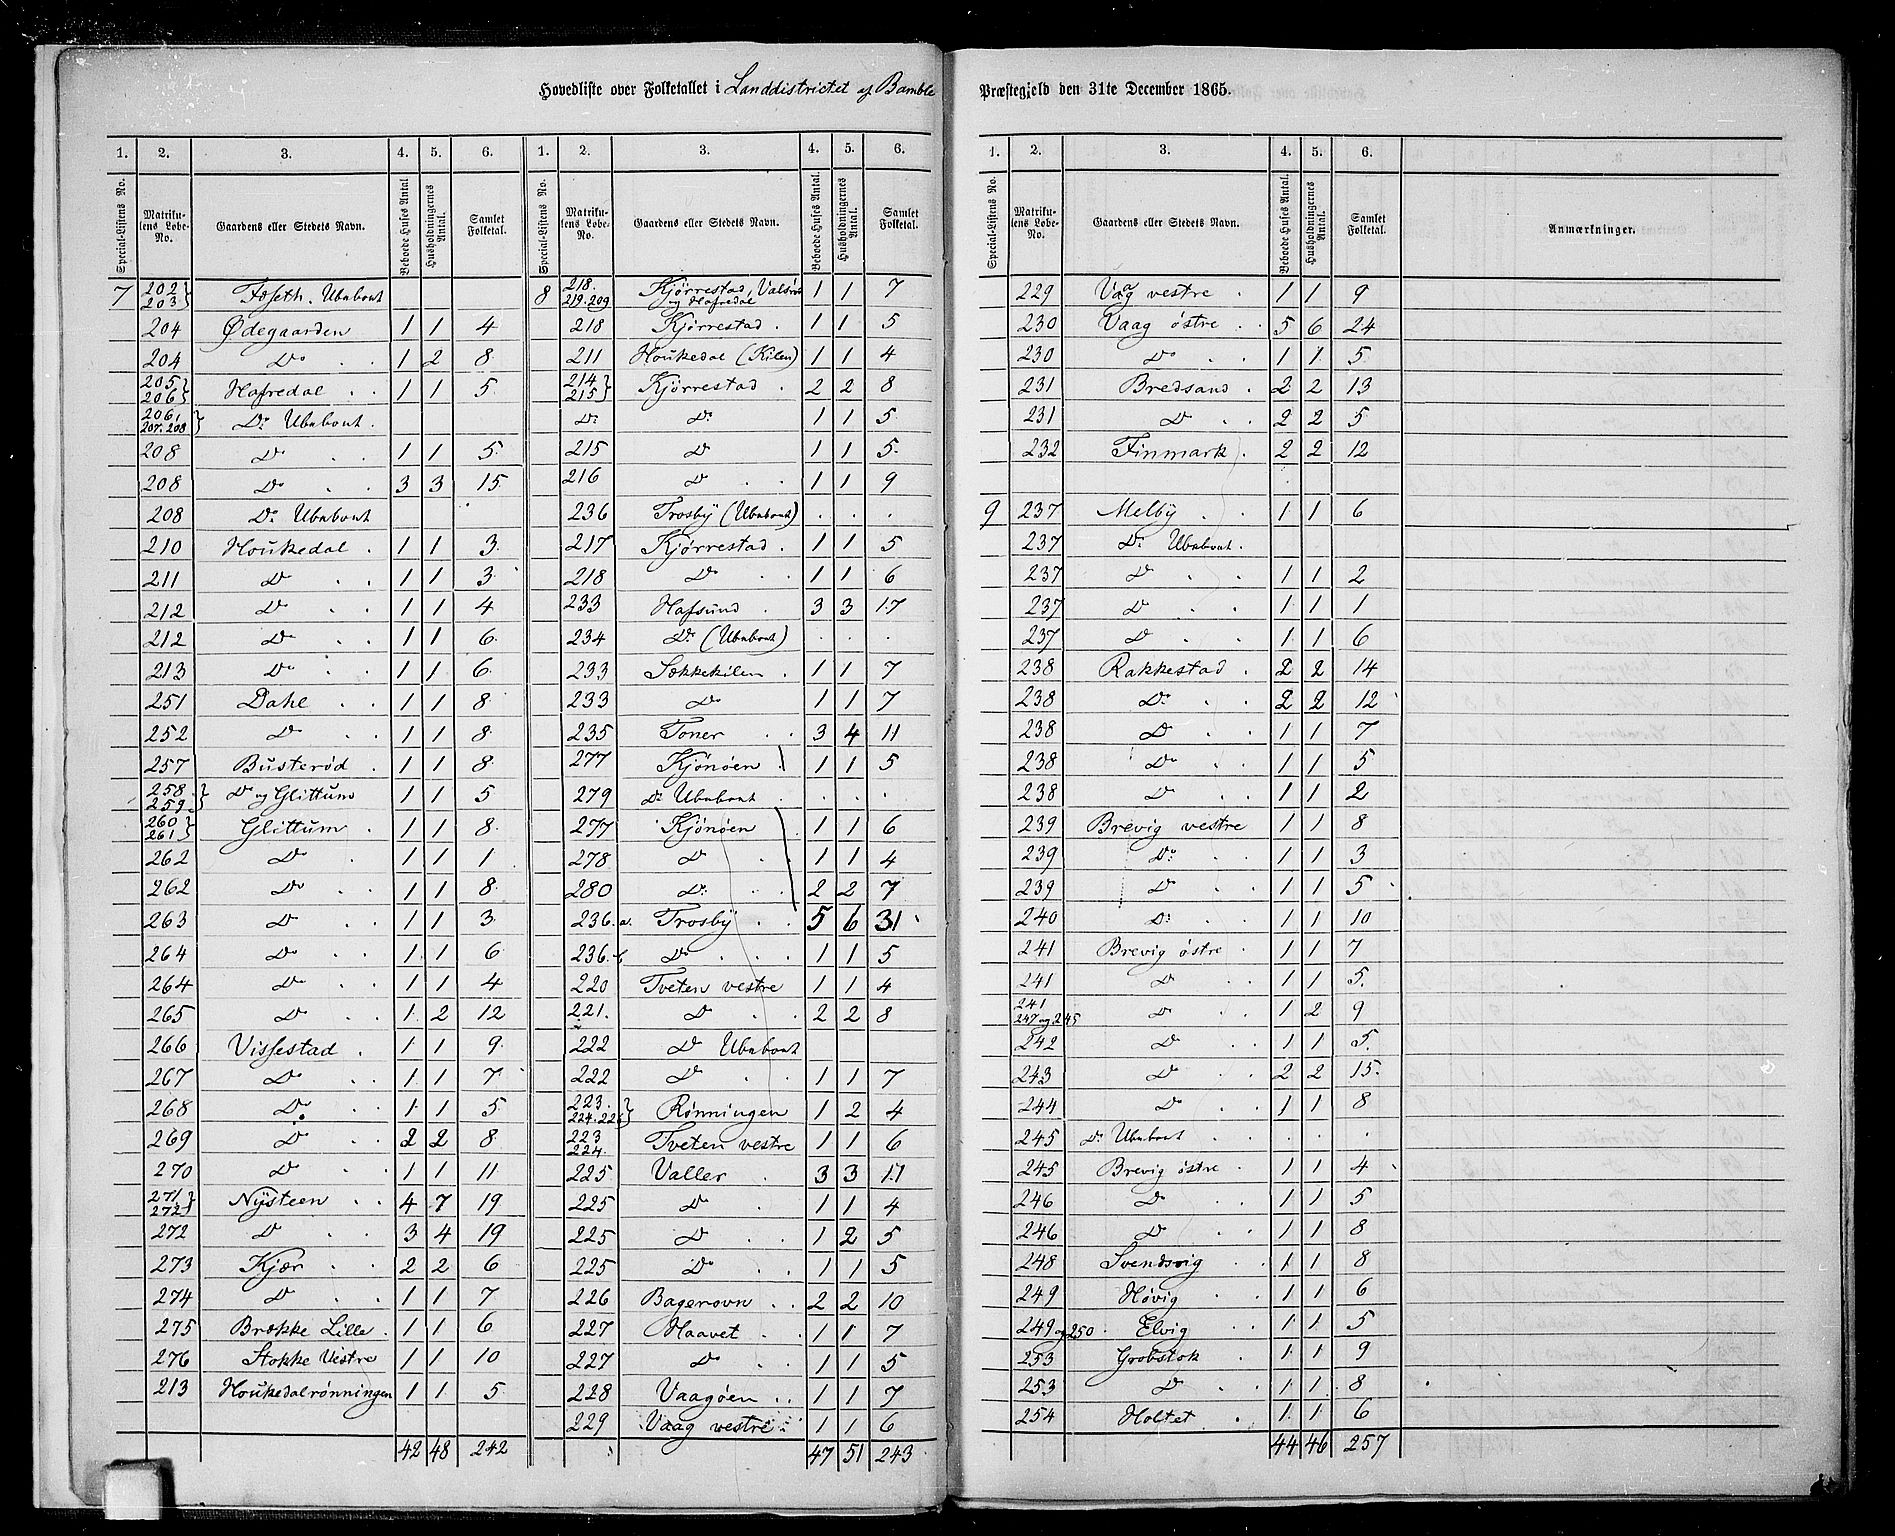 Hovedliste over Folketallet i Landdistrictet af Bamble Præstegjeld den 31te December 1865.
1. 2. 3. 4. 5. 6.
Special-Listens No. Matrikulens Løbe-No. Gaardens eller Stedets Navn. Beboede Huses Antal. Husholdningernes Antal. Samlet Folketal.
7 202 203 Foseth. Ubebout
204 Ødegaarden 1 1 4
204 Do 1 2 8
205 206 Hafredal 1 1 5
206, 207. 208 Do Ubebout.
208 Do 1 1 5
208 Do 3 3 15
208 Do Ubebout
210 Houkedal 1 1 3
211 Do 1 1 3
212 Do 1 1 4
212 Do 1 1 6
213 Do 1 1 6
251 Dahl 1 1 8
252 Do 1 1 8
257 Busterød 1 1 8
258 259 Do og Glittum 1 1 5
260 261 Glittum 1 1 8
262 Do 1 1 1
262 Do 1 1 8
263 Do 1 1 3
264 Do 1 1 6
264 Do 1 1 4
265 Do 1 2 12
266 Vissestad 1 1 9
267 Do 1 1 7
268 Do 1 1 5
269 Do 2 2 8
270 Do 1 1 11
271 272 Nysteen 4 7 19
272 Do 3 4 19
273 Kjær 2 2 6
274 Do 1 1 7
275 Brække Lille 1 1 6
276 Stokke Vestre 1 1 10
213 Houkedalrønningen 1 1 5
42 48 242
1. 2. 3. 4. 5. 6.
Special-Listens No. Matrikulens Løbe-No. Gaardens eller Stedets Navn. Beboede Huses Antal. Husholdningernes Antal. Samlet Folketal.
8 218. 219. 209 Kjørrestad, og Hafredal 1 1 7
218 Kjørrestad 1 1 5
211 Houkedal (Kilen) 1 1 4
214 215 Kjørrestad 2 2 8
Do Do 1 1 5
215 Do 1 1 5
216 Do 1 1 9
236 Trosby (Ubebout)
217 Kjørrestad 1 1 5
218 Do 1 1 6
233 Hafsund 3 3 17
234 Do (Ubebout)
233 Sækkekilen 1 1 7
233 Do 1 1 7
235 Toner 3 4 11
277 Kjønøen 1 1 5
279 Do Ubebout
277 Kjønøen 1 1 6
278 Do 1 1 4
280 Do 2 2 7
236. a. Trosby 5 6 31
236. b Do 1 1 5
220 Tveten vestre 1 1 4
221. Do 2 2 8
222 Do Ubebout
222 Do 1 1 7
223. 224. 226 Rønningen 1 2 4
223 224. Tveten vestre 1 1 6
225 Valler 3 3 11
225 Do 1 1 4
225 Do 1 2 5
225 Do 1 1 5
226 Bagerovn 2 2 10
227 Haavet 1 1 7
227 Do 1 1 5
228 Vaagøen 1 1 7
229 Vaag vestre 1 1 6
47 51 243
1. 2. 3. 4. 5. 6.
Special-Listens No. Matrikulens Løbe-No. Gaardens eller Stedets Navn. Beboede Huses Antal. Husholdningernes Antal. Samlet Folketal. Anmærkninger.
229 Vaag vestre 1 1 9
230 Vaag østre 5 6 24
230 Do 1 1 5
231 Bredsand 2 2 13
231 Do 2 2 5
232 Finmark 2 2 12
9 237 Melby 1 1 6
237 Do Ubebout.
237 Do 1 1 2
237 Do 1 1 1
237 Do 1 1 6
238 Rakkestad 2 2 14
238 Do 2 2 12
238 Do 1 1 7
238 Do 1 1 5
238 Do 1 1 2
239 Brevig vestre 1 1 8
239 Do 1 1 3
239 Do 1 1 5
240 Do 1 1 10
241 Brevig østre 1 1 7
241 Do 1 1 5
241 247 og 245 Do 1 2 9
242 Do 1 1 5
243 Do 2 2 15
244 Do 1 1 8
245 Do Ubebout
245 Brevig østre 1 1 4
246 Do 1 1 5
246 Do 1 1 8
248 Svendsvig 1 1 8
249 Høvig 1 1 6
249 og 250 Elvig 1 1 5
253 Grobstok 1 1 9
253 Do 1 1 8
254 Holtet 1 1 6
44 46 257